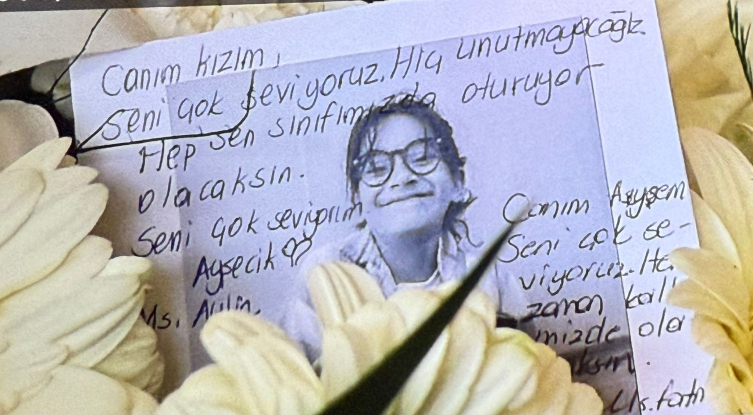 Canım kızım,
Seni çok seviyoruz. Hiç unutmayacağız.
Hep sen sınıfımızda oturuyor
olacaksın.
Seni çok seviyorum
Ayşecik
Ms. Aylin.
Canım Ayşem
Seni çok se-
viyoruz. He
zaman kal
imizde ola
ksın.
Ms.